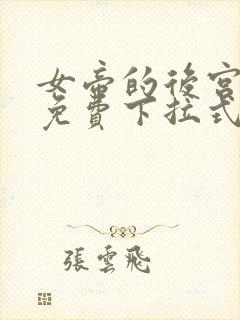 女帝的後宮
免費下拉式
張雲飛